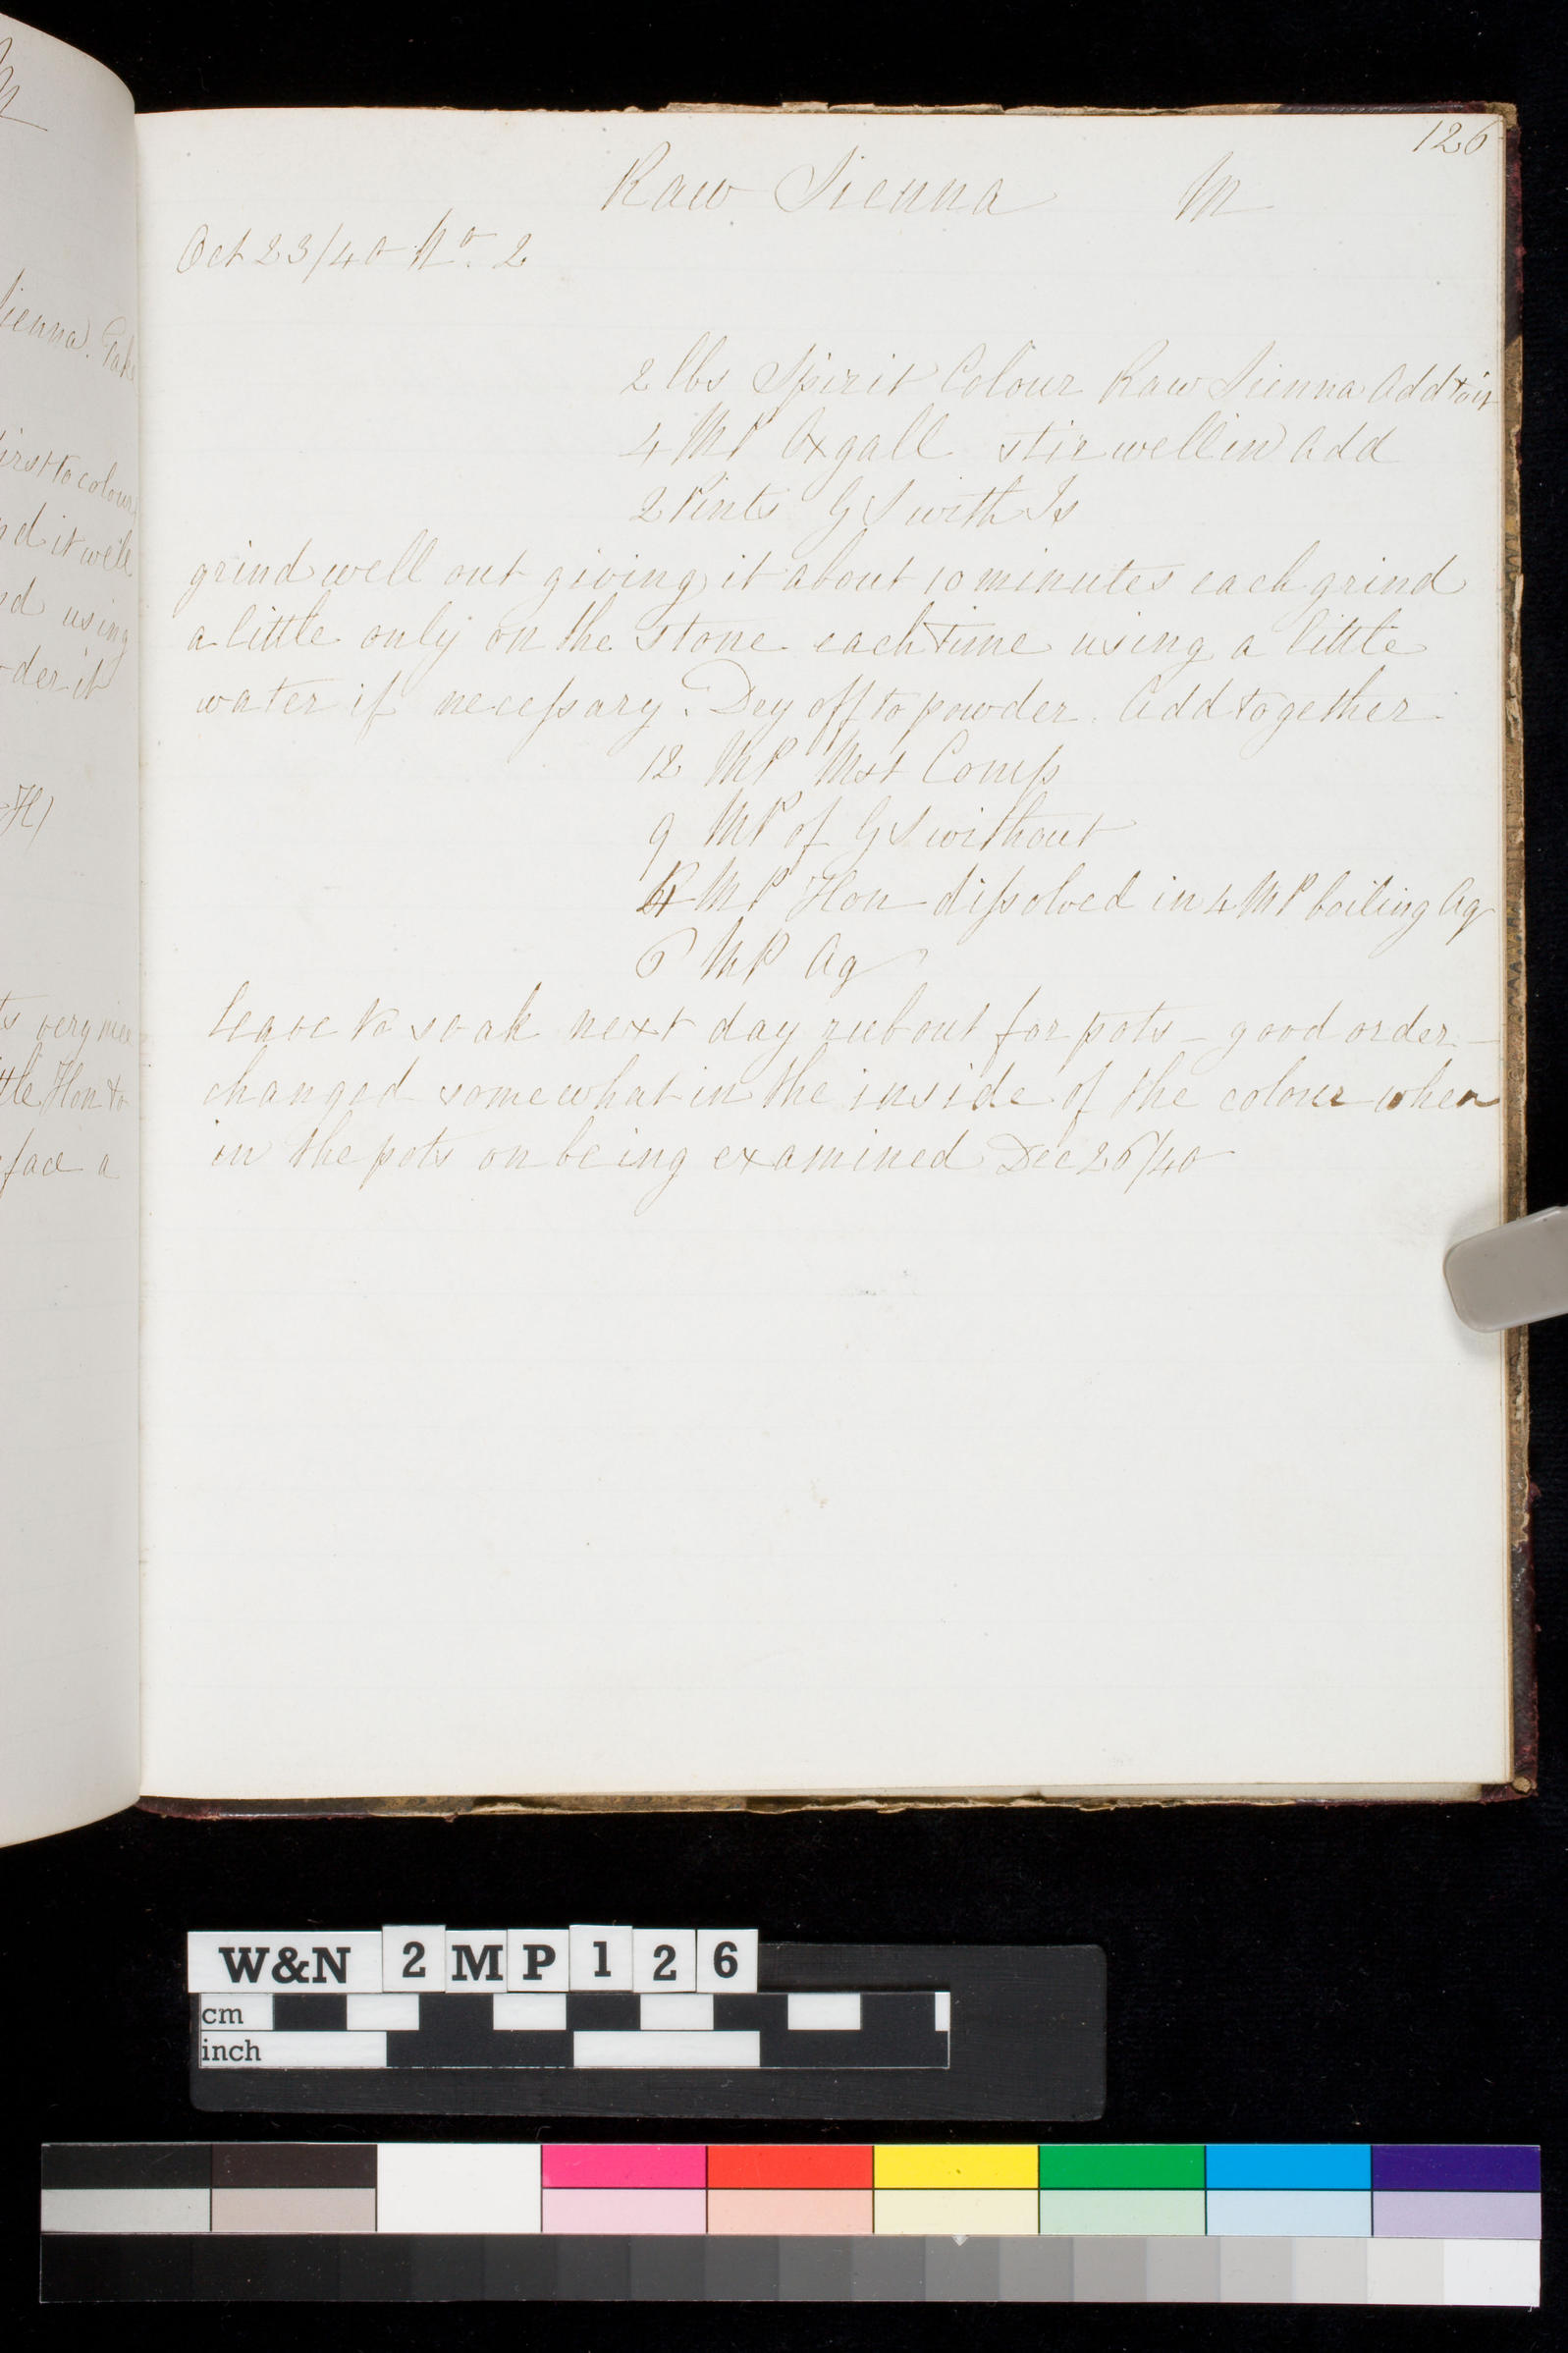 126
Raw Sienna M
Oct 23/40 No. 2
2 lbs Spirit Colour Raw Sienna Add to it
4 MP Oxgall stir well in Add
2 Pints GS with Is
grind well out giving it about 10 minutes each grind
a little only on the stone each time using a little
water if necessary. Dry off to powder. Add together
12 MP Mst Comp
9 MP of GS without
MP Hon dissolved in 4 MP boiling Aq
6 MP Aq
leave to soak next day rub out for pots - good order -
changed somewhat in the inside of the colour when
in the pots on being examined Dec 26/40
ienna. Take
irst to colour
d it well
d using
-der it
H)
ts very nice
ttle Hon to
face a
W&N 2MP126
cm
inch